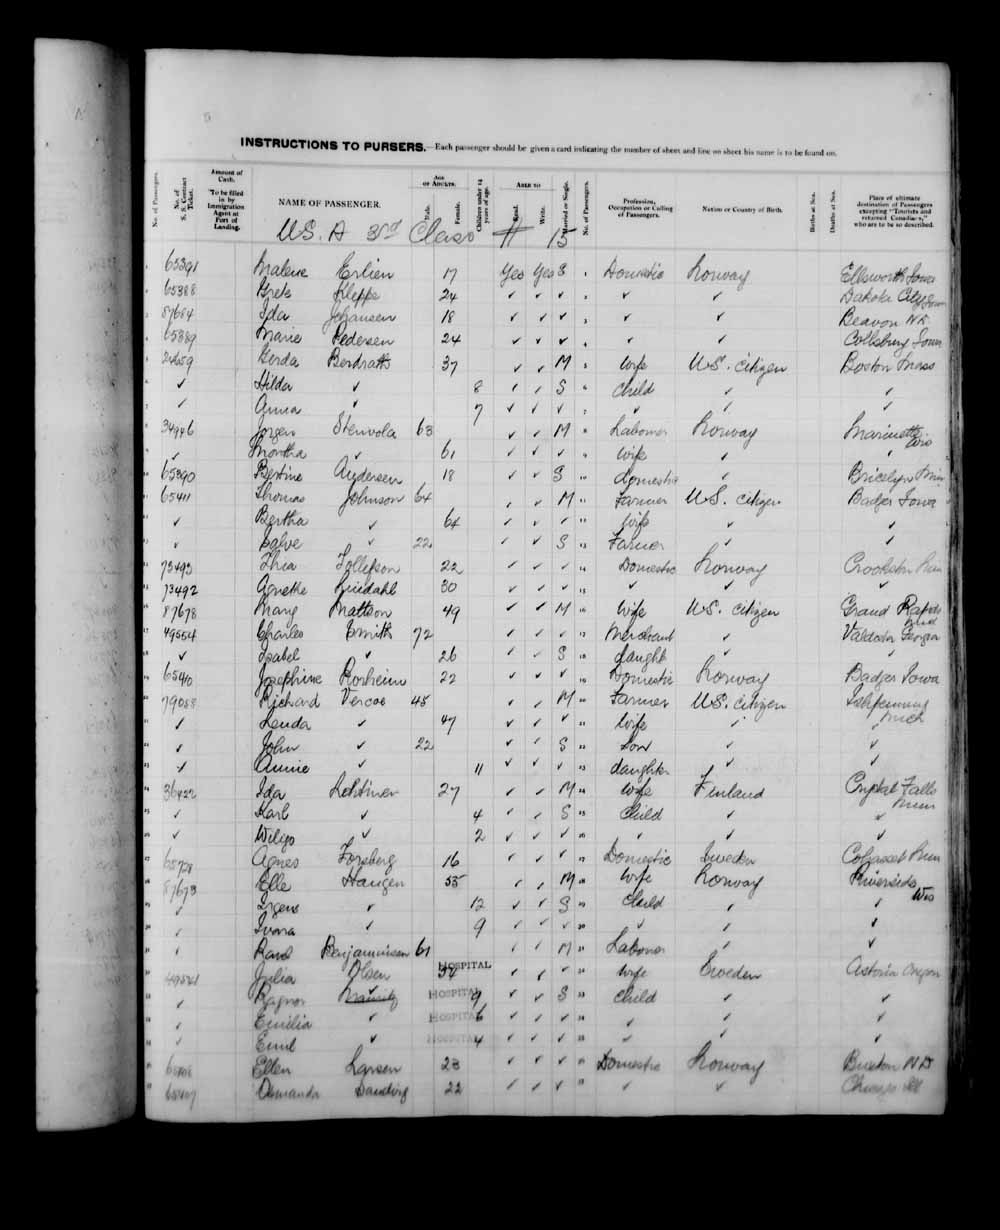 INSTRUCTIONS TO PURSERS.—Each passenger should be given a card indicating the number of sheet and line on sheet his name is to be found on.
No. of Passengers. No. of S. S. Contract Ticket. Amount of Cash. To be filled in by Immigration Agent at Port of Landing. NAME OF PASSENGER. Age of Adults. Male. Female. Children under 14 years of age. Able to Read. Write. Married or Single. No. of Passengers. Profession, Occupation or Calling of Passengers. Nation or Country of Birth. Births at Sea. Deaths at Sea. Place of ultimate destination of Passengers excepting "Tourists and returned Canadians," who are to be so described.
U.S.A 3rd Class # 15
65391 Malene Erlien 17 Yes Yes S Domestic Norway Ellsworth Iowa
65388 Grete Kleppe 24 ✓ ✓ ✓ ✓ ✓ Dakota City Iowa
87684 Ida Johansen 18 ✓ ✓ ✓ ✓ ✓ N.D.
65389 Marie Pedersen 24 ✓ ✓ ✓ ✓ ✓ Iowa
Gerda 37 ✓ ✓ M Wife U.S. Citizen Boston Mass
✓ Hilda ✓ 8 ✓ ✓ S Child ✓ ✓
✓ Anna ✓ 7 ✓ ✓ ✓ ✓ ✓ ✓
34946 Jorgen Stenvola 63 ✓ ✓ M Laborer Norway Marinette Wis
✓ Martha ✓ 61 ✓ ✓ ✓ Wife ✓ ✓
65390 Bertine Andersen 18 ✓ ✓ S domestic ✓ Bricelyn Min
65411 Thomas Johnson 64 ✓ ✓ M Farmer U.S. Citizen Badger Iowa
✓ Bertha ✓ 64 ✓ ✓ ✓ Wife ✓ ✓
✓ ✓ 22 ✓ ✓ S Farmer ✓ ✓
73493 Thia Tollefson 22 ✓ ✓ ✓ Domestic Norway Crookston Min
73492 Agnethe Lindahl 30 ✓ ✓ ✓ ✓ ✓ ✓
87678 Mary Mattson 49 ✓ ✓ M Wife U.S. Citizen Grand Rapids
49554 Charles Smith 72 ✓ ✓ ✓ Merchant ✓ Valdosta Georgia
✓ Isabel ✓ 26 ✓ ✓ S daught ✓ ✓
Josephine Rorheim 22 ✓ ✓ ✓ Domestic Norway Badger Iowa
79088 Richard Vercoe 45 ✓ ✓ M Farmer U.S. Citizen Ishpeming Mich
✓ Lenda ✓ 47 ✓ ✓ ✓ Wife ✓ ✓
✓ John ✓ 22 ✓ ✓ S Son ✓ ✓
✓ Annie ✓ 11 ✓ ✓ ✓ daughter ✓ ✓
36422 Ida Lehtinen 27 ✓ ✓ M Wife Finland Crystal Falls
✓ Karl ✓ 4 ✓ ✓ S Child ✓ ✓
✓ Wilgo ✓ 2 ✓ ✓ ✓ ✓ ✓ ✓
Agnes Forsberg 16 ✓ ✓ ✓ Domestic Sweden Cohasset Min
87673 Elle Haugen 55 ✓ ✓ M Wife Norway Riverside Wis
✓ ✓ 12 ✓ ✓ S Child ✓ ✓
✓ ✓ 9 ✓ ✓ ✓ ✓ ✓ ✓
✓ Benjaminsen 61 ✓ ✓ M Laborer ✓ ✓
Julia Olsen HOSPITAL ✓ ✓ ✓ Wife Sweden Astoria Oregon
✓ Ragnar HOSPITAL 9 ✓ ✓ S Child ✓ ✓
✓ Emilia ✓ HOSPITAL 6 ✓ ✓ ✓ ✓ ✓ ✓
✓ Emil ✓ HOSPITAL 4 ✓ ✓ ✓ ✓ ✓ ✓
Ellen Larsen 23 ✓ ✓ ✓ Domestic Norway Buxton N D
Osmanda 22 ✓ ✓ ✓ ✓ ✓ Chicago Ill